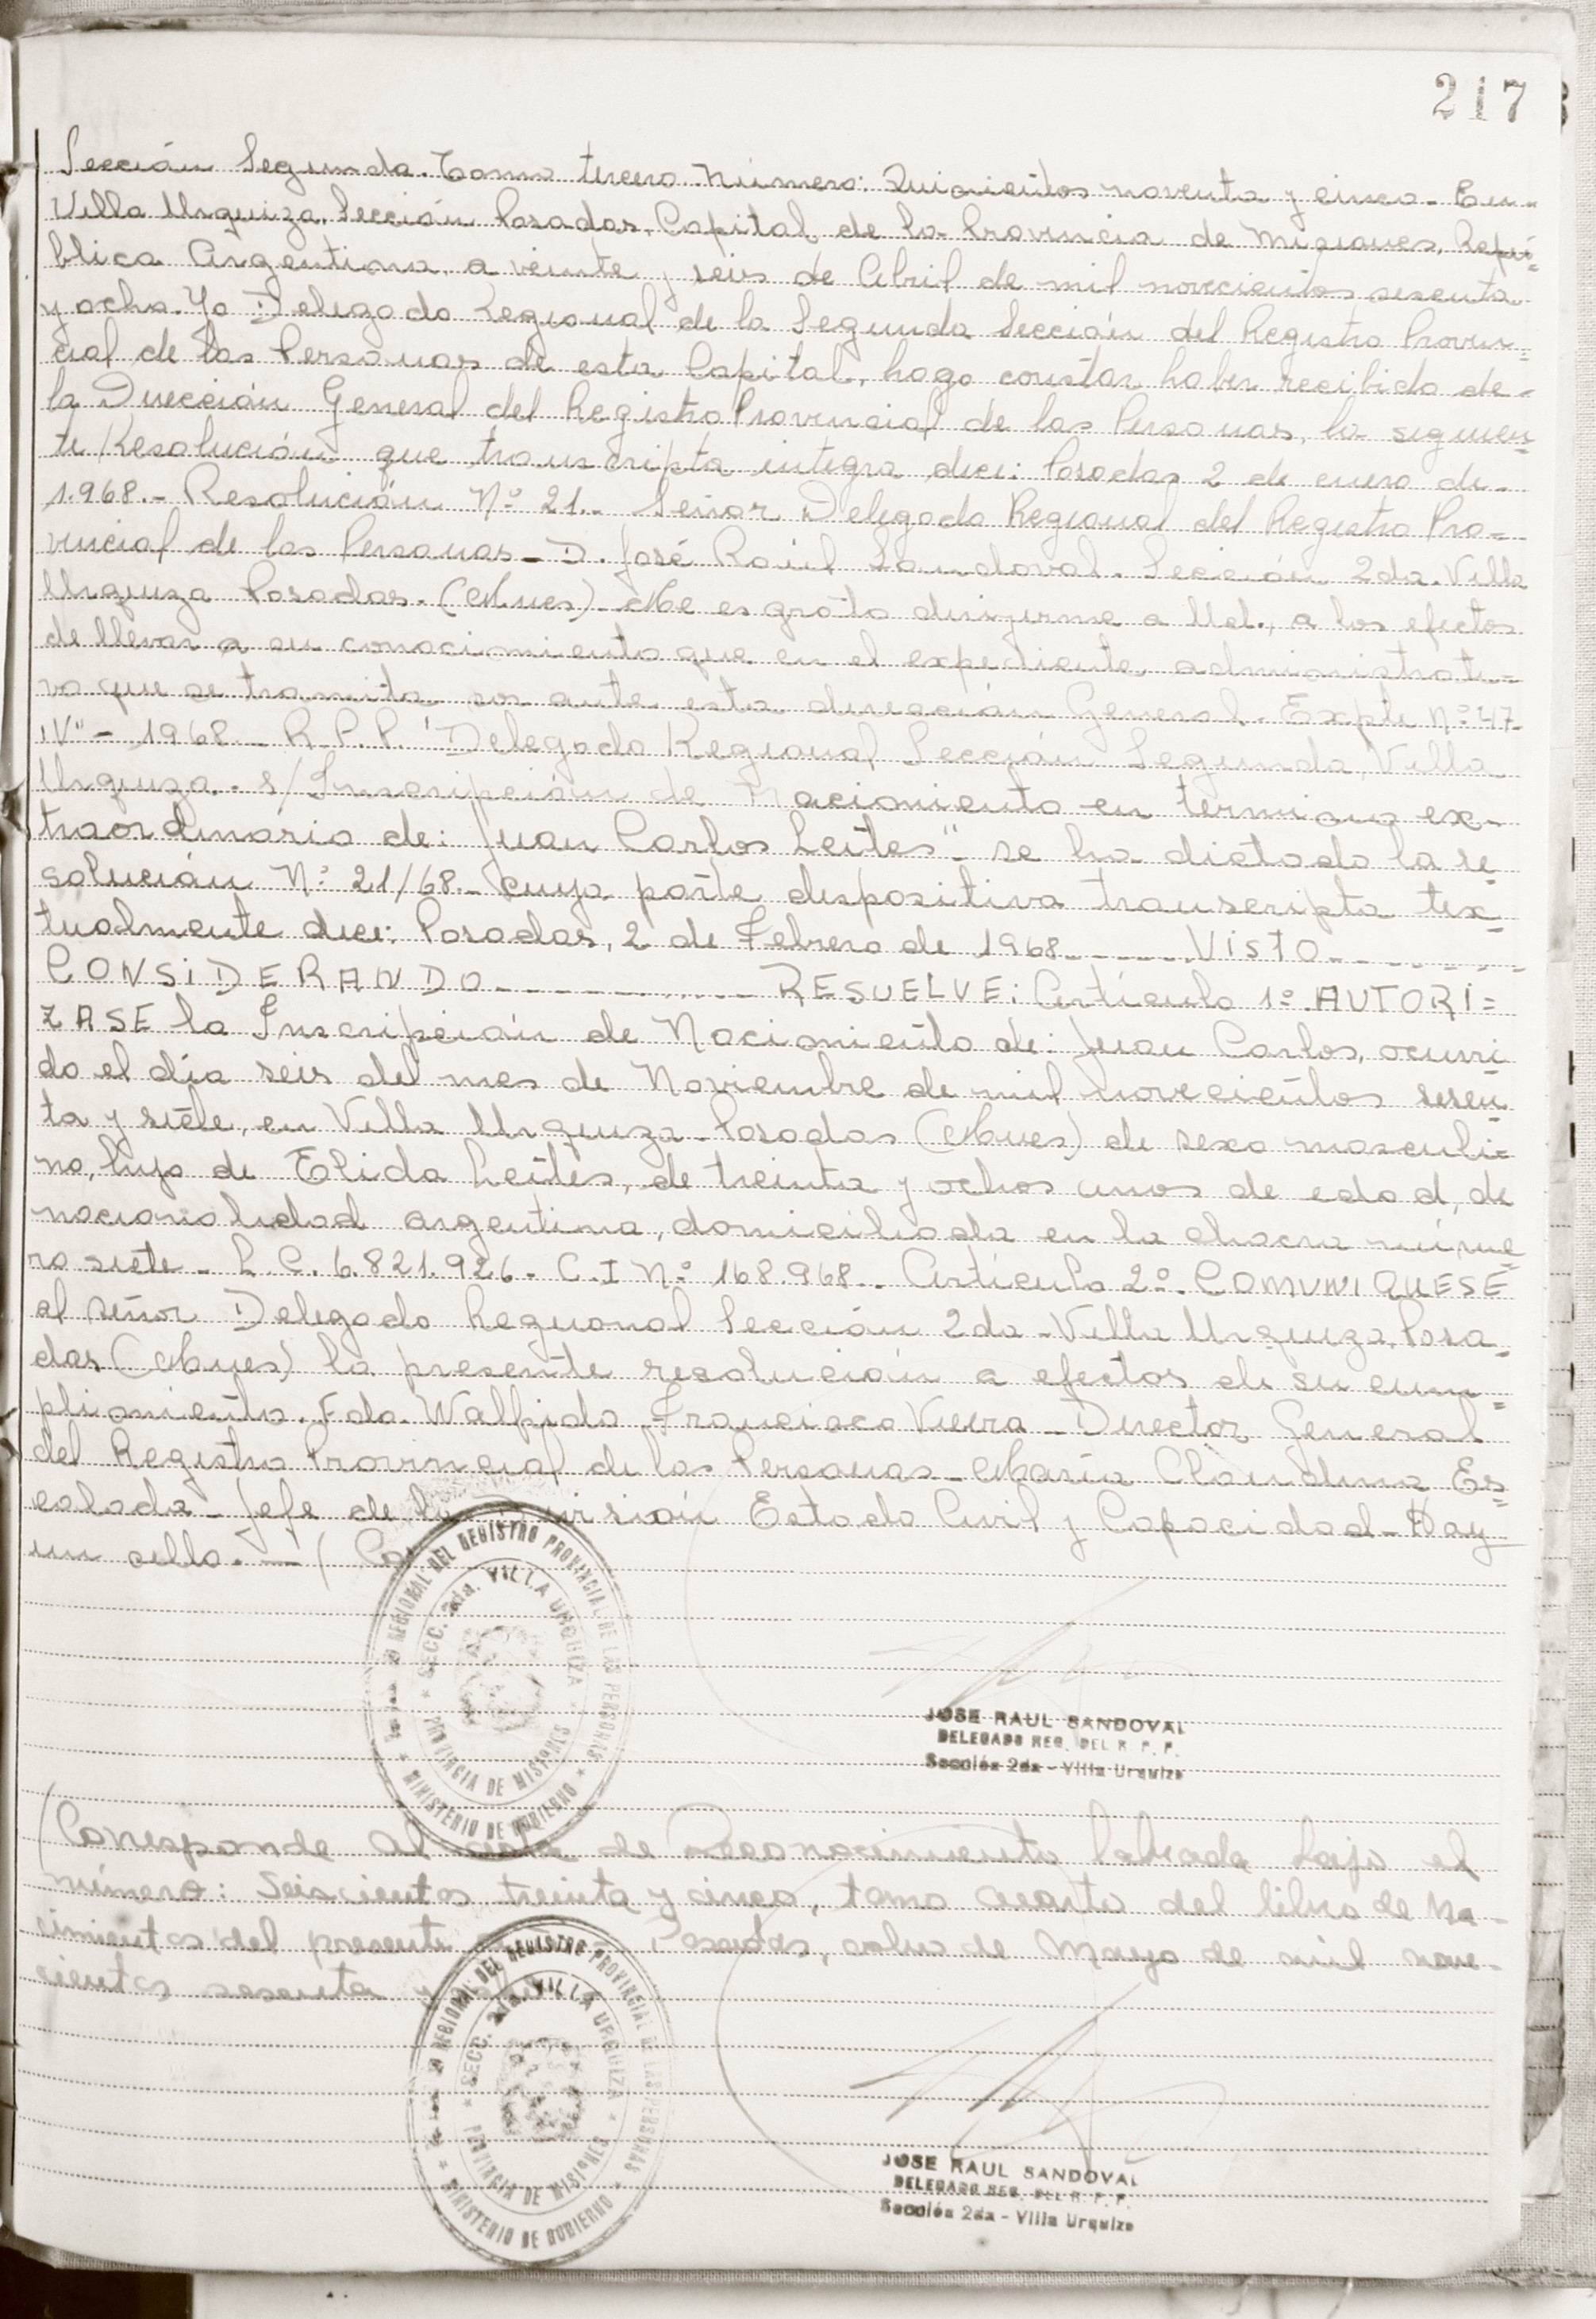 217
Sección Segunda. Tomo tercero. Número: Quinientos noventa y cinco. En
Villa Urquiza, Sección Posadas, Capital de la Provincia de Misiones, Repú=
blica Argentina, a veinte y seis de Abril de mil novecientos sesenta
y ocho. Yo Delegado Regional de la Segunda Sección del Registro Provin=
cial de las Personas de esta Capital, hago constar haber recibido de
la Dirección General del Registro Provincial de las Personas, la siguien=
te Resolución que transcripta integra dice: Posadas 2 de enero de
1.968.- Resolución Nº 21.- Señor Delegado Regional del Registro Pro=
vincial de las Personas - D. José Raúl Sandoval. Sección 2da. Villa
Urquiza Posadas. (Mnes) - Me es grato dirigirme a Ud., a los efectos
de llevar a su conocimiento que en el expediente administrati=
vo que se tramita por ante esta dirección General. Expte Nº 47-
"IV" - 1968 - R.P.P. "Delegado Regional Sección Segunda, Villa
Urquiza. s/ Inscripción de Nacimiento en termino ex-
traordinario de: Juan Carlos Leites" - se ha dictado la re=
solución Nº 21/68 - cuya parte dispositiva transcripta tex=
tualmente dice: Posadas, 2 de Febrero de 1968 ------- VISTO -------
CONSIDERANDO ------------ RESUELVE: Artículo 1º AUTORI=
ZASE la Inscripción de Nacimiento de: Juan Carlos, ocurri=
do el día seis del mes de Noviembre de mil novecientos sesen=
ta y siete, en Villa Urquiza - Posadas (Mnes) de sexo masculi=
no, hijo de Elida Leites, de treinta y ochos anos de edad, de
nacionalidad argentina, domiciliada en la chacra núme=
ro siete - L.C. 6.821.926 - C.I Nº 168.968 - Artículo 2º. COMUNIQUESE
al señor Delegado Regional Sección 2da - Villa Urquiza, Posa=
das (Mnes) la presente resolución a efectos de su cum=
plimiento. Fdo. Walfrido Francisco Vieira - Director General
del Registro Provincial de las Personas - María Claudina Es=
calada - Jefe de la Division Estado Civil y Capacidad - Hay
un sello. - (
REGIONAL DEL REGISTRO PROVINCIAL DE LAS PERSONAS
SECC. 2da. VILLA URQUIZA
PROVINCIA DE MISIONES
MINISTERIO DE GOBIERNO
JOSE RAUL SANDOVAL
DELEGADO REG. DEL R. P. P.
Sección 2da - Villa Urquiza
(Corresponde al acta de Reconocimiento labrada bajo el
número: Seiscientos treinta y cinco, tomo cuarto del libro de Na-
cimientos del presente Posadas, ocho de Mayo de mil nove-
cientos sesenta y
REGIONAL DEL REGISTRO PROVINCIAL DE LAS PERSONAS
SECC. 2da. VILLA URQUIZA
PROVINCIA DE MISIONES
MINISTERIO DE GOBIERNO
JOSE RAUL SANDOVAL
DELEGADO REG. DEL R. P. P.
Sección 2da - Villa Urquiza